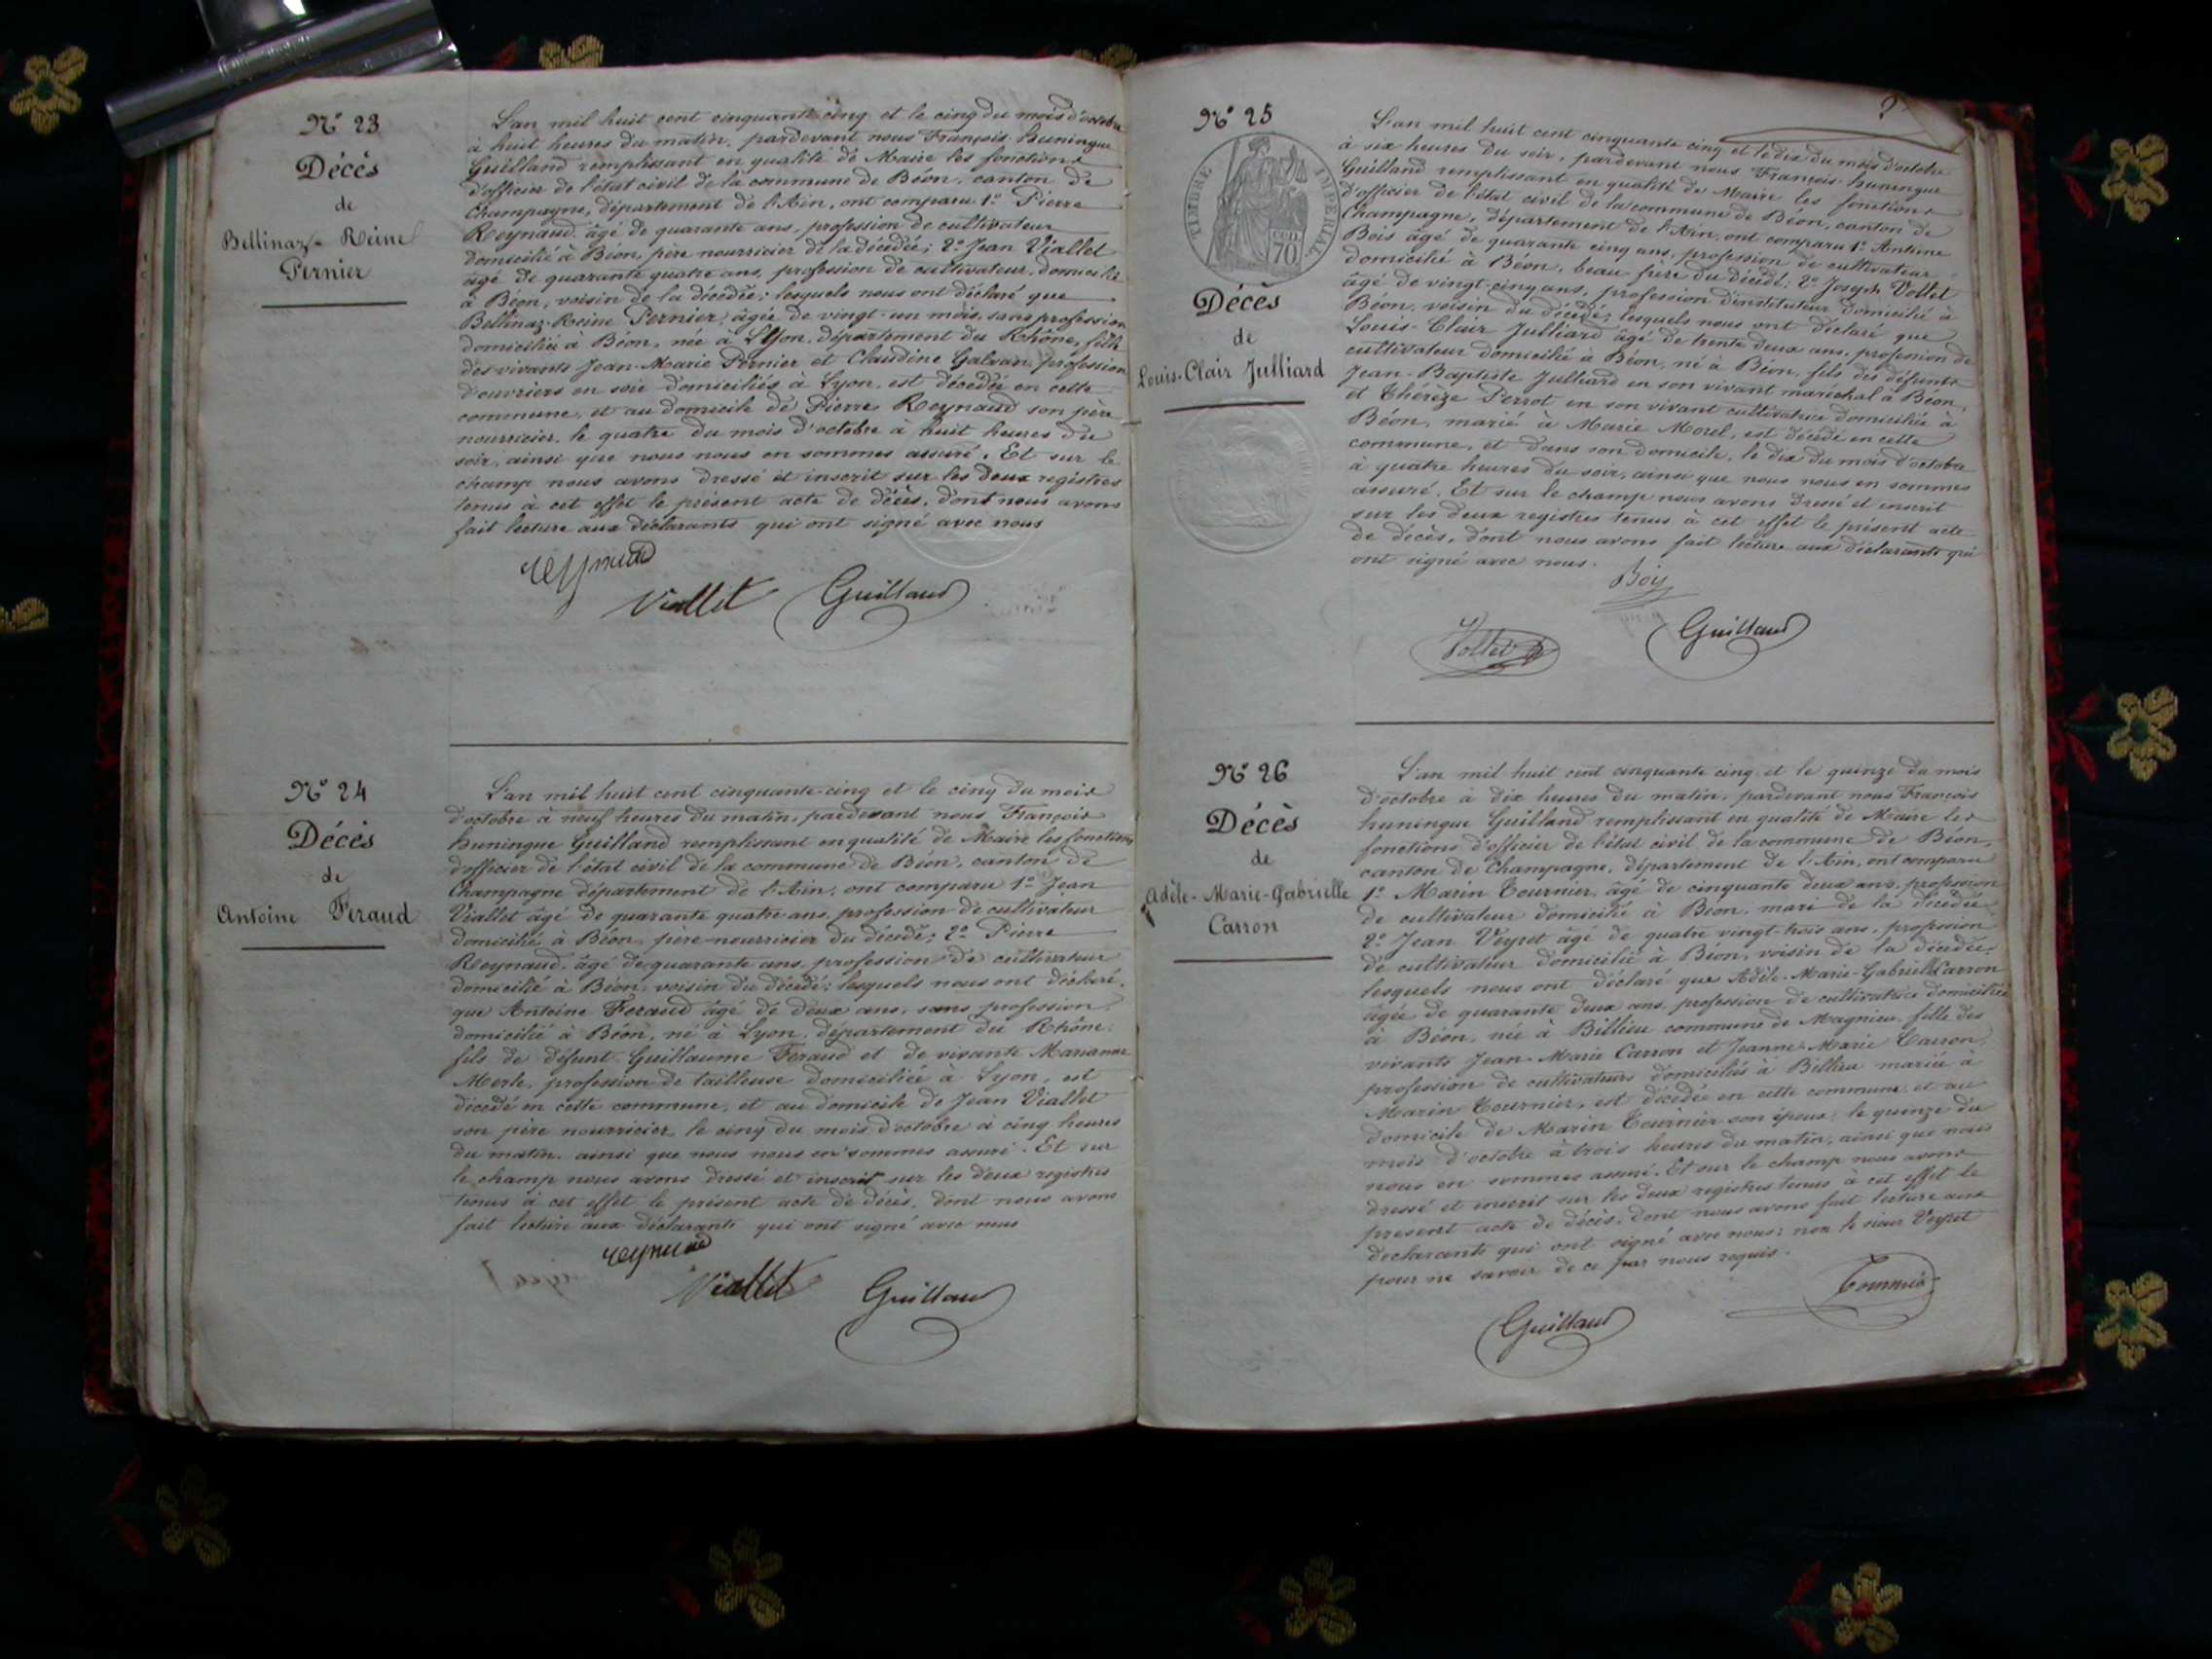 Nº 23
Décès
de
Bellinaz-Reine
Pernier
L'an mil huit cent cinquante cinq et le cinq du mois d'octobre
à huit heures du matin, pardevant nous François huningue
Guilland remplissant en qualité de Maire les fonctions
d'officier de l'état civil de la commune de Béon, canton de
Champagne, département de l'Ain, ont comparu 1º Pierre
Reynaud, âgé de quarante ans, profession de cultivateur
domicilié à Béon, père nourricier de la décédée; 2º Jean Viallet
âgé de quarante quatre ans, profession de cultivateur, domicilié
à Béon, voisin de la décédée; lesquels nous ont déclaré que
Bellinaz-Reine Pernier, âgée de vingt-un mois, sans profession
domiciliée à Béon, née à Lyon, département du Rhône, fille
des vivants Jean-Marie Pernier et Claudine Galvan, profession
d'ouvriers en soie domiciliés à Lyon, est décédée en cette
commune, et au domicile de Pierre Reynaud son père
nourricier, le quatre du mois d'octobre à huit heures du
soir, ainsi que nous nous en sommes assuré. Et sur le
champ nous avons dressé et inscrit sur les deux registres
tenus à cet effet le présent acte de décès, dont nous avons
fait lecture aux déclarants qui ont signé avec nous
reynaud
Viallet Guilland
Nº 24
Décès
de
Antoine Feraud
L'an mil huit cent cinquante-cinq et le cinq du mois
d'octobre à neuf heures du matin, pardevant nous François
huningue Guilland remplissant en qualité de Maire les fonctions
d'officier de l'état civil de la commune de Béon, canton de
Champagne département de l'Ain, ont comparu 1º Jean
Viallet âgé de quarante quatre ans, profession de cultivateur
domicilié à Béon, père-nourricier du décédé; 2º Pierre
Reynaud, âgé de quarante ans, profession de cultivateur
domicilié à Béon, voisin du décédé; lesquels nous ont déclaré,
que Antoine Feraud âgé de deux ans, sans profession,
domicilié à Béon, né à Lyon, département du Rhône,
fils de défunt Guillaume Feraud et de vivante Marianne
Merle, profession de tailleuse domiciliée à Lyon, est
décédé en cette commune, et au domicile de Jean Viallet
son père nourricier, le cinq du mois d'octobre à cinq heures
du matin, ainsi que nous nous en sommes assuré. Et sur
le champ nous avons dressé et inscrit sur les deux registres
tenus à cet effet le présent acte de décès, dont nous avons
fait lecture aux déclarants qui ont signé avec nous
reynaud
Viallet Guilland
Nº 25
TIMBRE IMPERIAL
70
Décès
de
Louis-Clair Julliard
L'an mil huit cent cinquante cinq et le dix du mois d'octobre
à six heures du soir, pardevant nous François-huningue
Guilland remplissant en qualité de Maire les fonctions
d'officier de l'état civil de la commune de Béon, canton de
Champagne, département de l'Ain, ont comparu 1º Antoine
Bois âgé de quarante cinq ans, profession de cultivateur
domicilié à Béon, beau frère du décédé; 2º Joseph Vollet
âgé de vingt-cinq ans, profession d'instituteur domicilié à
Béon, voisin du décédé; lesquels nous ont déclaré que
Louis-Clair Julliard âgé de trente deux ans, profession de
cultivateur domicilié à Béon, né à Béon, fils des défunts
Jean-Baptiste Julliard en son vivant maréchal à Béon,
et Thérèze Perrot en son vivant cultivatrice domiciliée à
Béon, marié à Marie Morel, est décédé en cette
commune, et dans son domicile, le dix du mois d'octobre
à quatre heures du soir, ainsi que nous nous en sommes
assuré. Et sur le champ nous avons dressé et inscrit
sur les deux registres tenus à cet effet le présent acte
de décès, dont nous avons fait lecture aux déclarants qui
ont signé avec nous.
Bois
Vollet Guilland
Nº 26
Décès
de
Adèle-Marie-Gabrielle
Carron
L'an mil huit cent cinquante cinq et le quinze du mois
d'octobre à dix heures du matin, pardevant nous François
huningue Guilland remplissant en qualité de Maire les
fonctions d'officier de l'état civil de la commune de Béon,
canton de Champagne, département de l'Ain, ont comparu
1º Marin Tournier, âgé de cinquante deux ans, profession
de cultivateur domicilié à Béon, mari de la décédée
2º Jean Veyret âgé de quatre vingt-trois ans, profession
de cultivateur domicilié à Béon, voisin de la décédée;
lesquels nous ont déclaré que Adèle-Marie-Gabrielle Carron
âgée de quarante deux ans, profession de cultivatrice domiciliée
à Béon, née à Billieu commune de Magnieu, fille des
vivants Jean-Marie Carron et Jeanne-Marie Carron,
profession de cultivateurs domiciliés à Billieu mariée à
Marin Tournier, est décédée en cette commune, et au
domicile de Marin Tournier son époux, le quinze du
mois d'octobre à trois heures du matin, ainsi que nous
nous en sommes assuré. Et sur le champ nous avons
dressé et inscrit sur les deux registres tenus à cet effet le
present acte de décès, dont nous avons fait lecture aux
declarants qui ont signé avec nous; non le sieur Veyret
pour ne savoir de ce par nous requis.
Tournier
Guilland